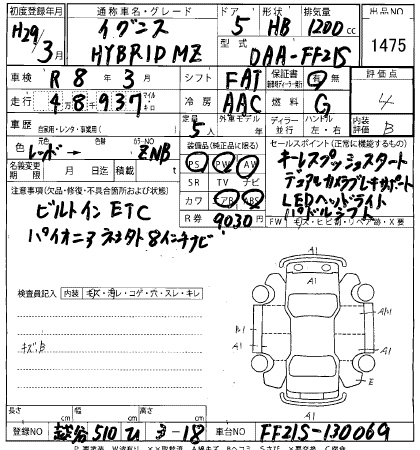 初度登録年月 通称車名・グレード ドア 形状 排気量 出品NO
H29/3月 イグニス HYBRID MZ 5 HB 1200cc 1475
型式 DAA-FF21S
車検 R8年3月 シフト FAT 保証書 有 無 評価点 4
走行 48937 マイル キロ 冷房 AAC 燃料 G
車歴 自家用・レンタ・事業用( ) 定員 5人 外車モデル 年 ディーラー 並行 ハンドル 左・右 内装評価 B
色 レッド→ カラーNO ZNB 装備品(純正品に限る) セールスポイント(正常に機能するもの)
名義変更期限 月 日 積載 t PS PW AW キーレスプッシュスタート
SR TV ナビ デュアルカメラブレーキサポート
注意事項(欠品・修復・不具合箇所および状態) カワ エアB ABS LEDヘッドライト
ビルトインETC R券 9030 パドルシフト
パイオニア 8インチナビ FW キズ・ヒビ・リペア跡・X要
検査員記入 内装 キズ・汚レ・コゲ・穴・スレ・キレ
キズ:B
A1
A1
A1
B1
A1
A1
E
A1
長さ cm 幅 cm 高さ cm
登録NO 越谷 510 ひ 3-18 車台NO FF21S-130069